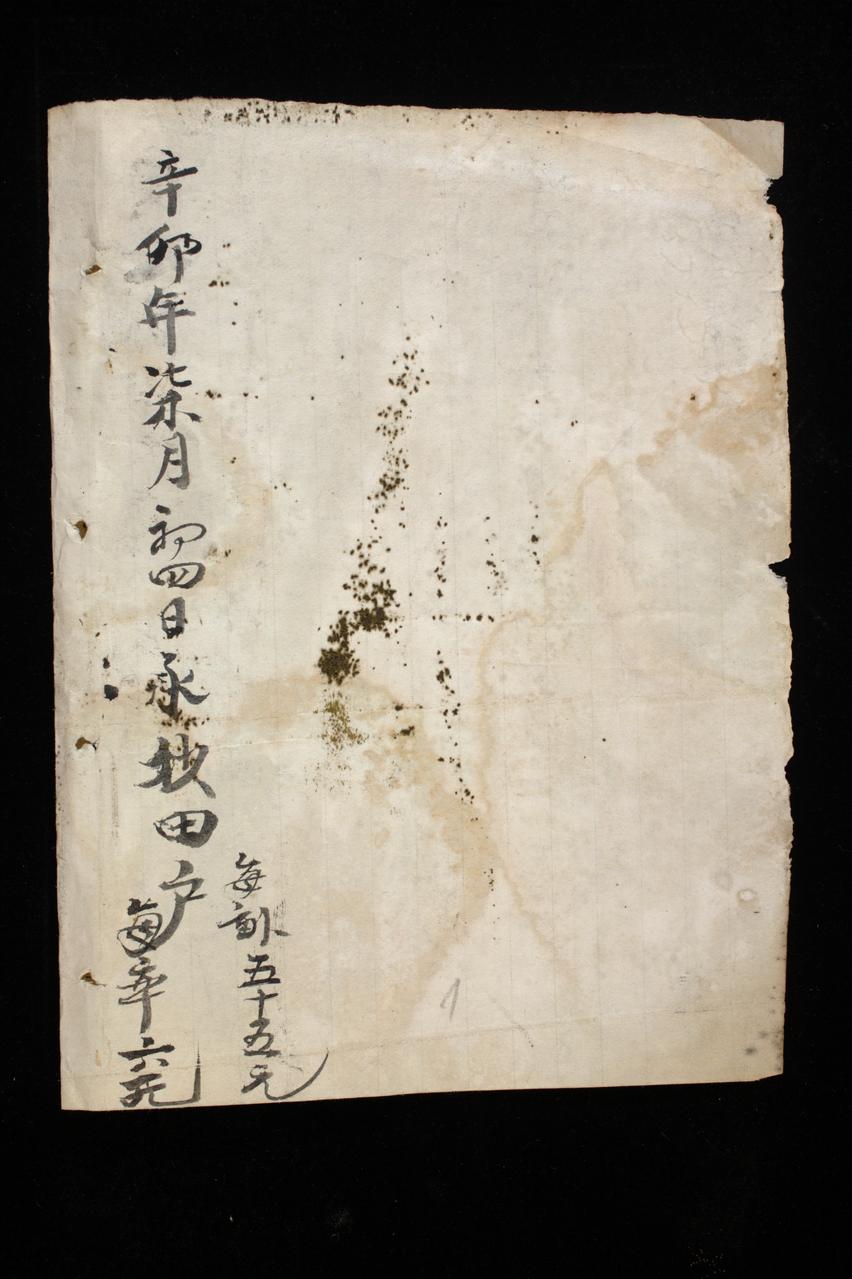 辛卯年柒月初四日承抄田户
每副五十五元
每本六元